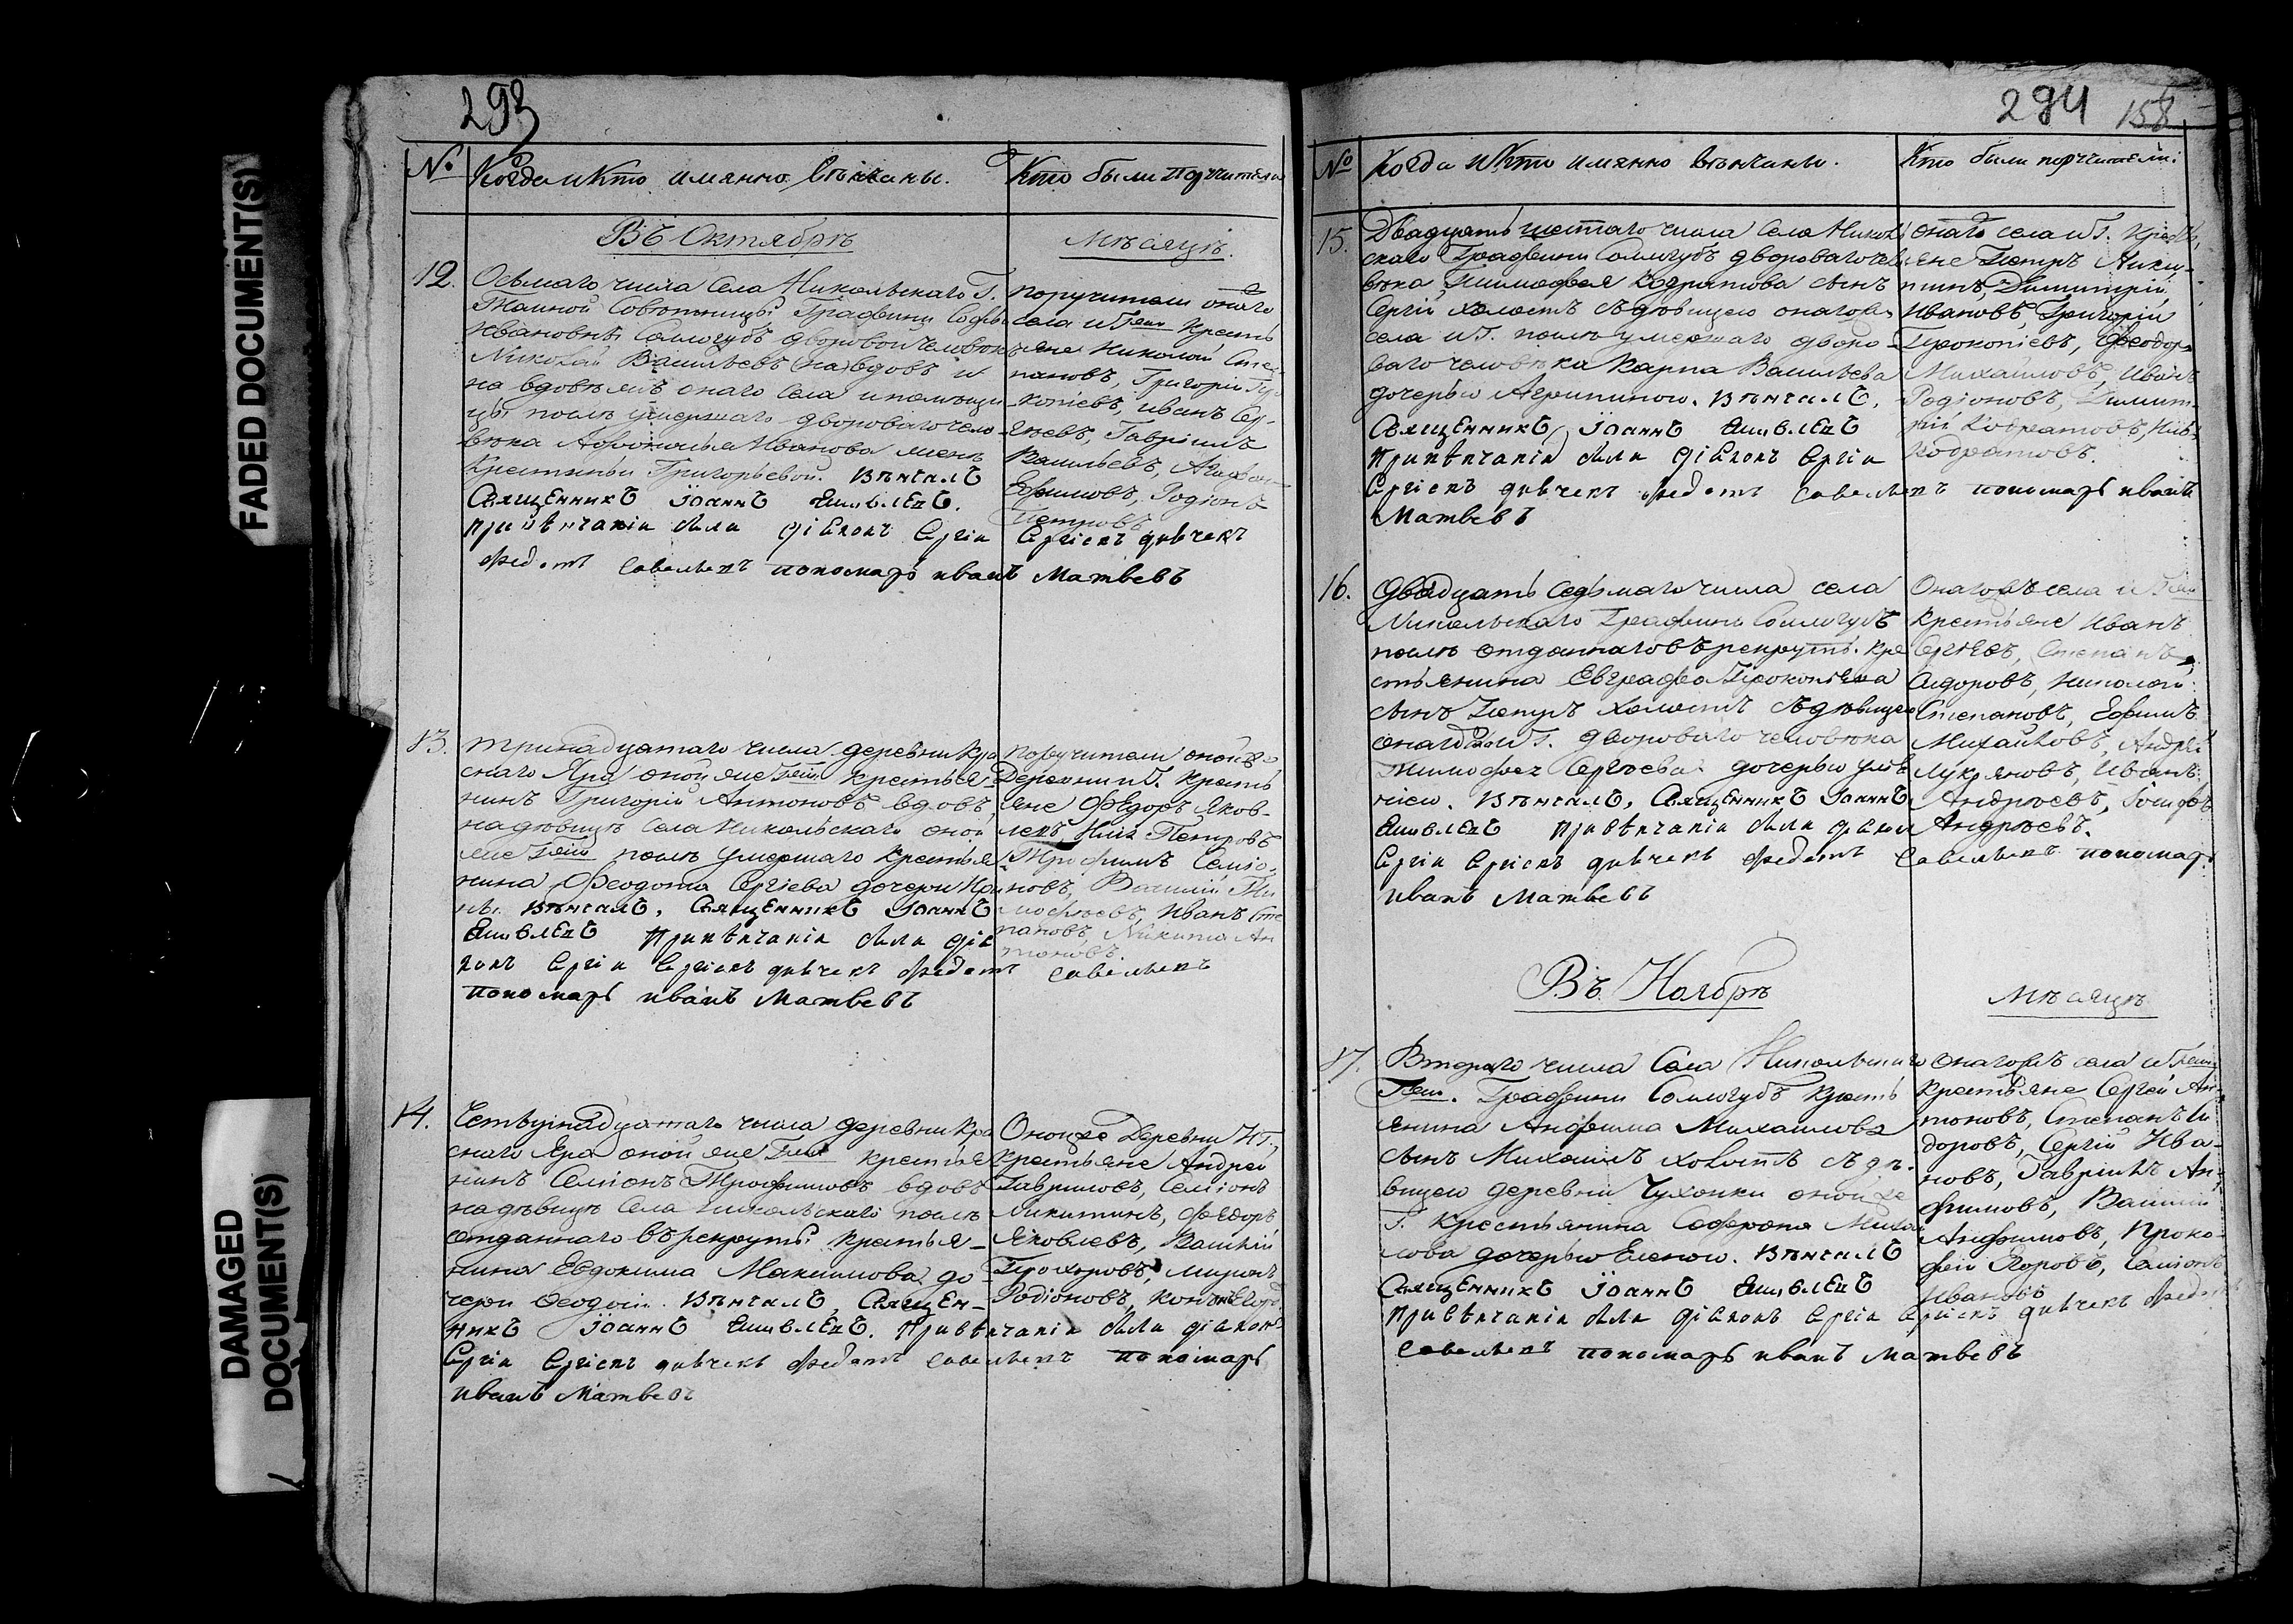 FADED DOCUMENT(S)
DAMAGED
DOCUMENT(S)
293
№
Когда и Кто имянно Вѣнчаны.
Кто были Поручители
Въ Октябрѣ
Мѣсяцѣ.
12.
Осьмаго числа Села Никольскаго Г.
Тайной Совѣтницы Графини Софьи
Ивановны Сологубъ дворовой человѣкъ
Николай Васильевъ вдовъ
на вдовѣ онаго села и помѣщи
цы послѣ умершаго двороваго чело-
вѣка Иванова женѣ
Григорьевой. Вѣнчалъ
Священникъ Іоаннъ
При вѣнчаніи были діаконъ Сергій Сергіевъ дьячекъ
Федотъ Савельевъ пономарь Иванъ Матвевъ
Поручители онаго
села и Г-жи Кресть
яне Николай Сте
пановъ, Григорій Про
копіевъ, Иванъ Сер-
гѣевъ, Гавріилъ
Васильевъ,
Ефимовъ, Родіонъ
Петровъ
13.
Тринадцатаго числа деревни Кра
снаго Яра оной же Г-жи крестья
нинъ Григорій Антоновъ вдовъ,
на дѣвицѣ села Никольскаго оной
же Г-жи послѣ умершаго крестья
нина Феодота Сергіева дочери Ири
нѣ. Вѣнчалъ, Священникъ Іоаннъ
При вѣнчаніи были діа
конъ Сергій Сергіевъ дьячекъ Федотъ Савельевъ
пономарь Иванъ Матвевъ
Поручители оной же
Деревни и Г. Кресть
яне Федоръ Яков-
левъ, Илія Петровъ
Трофимъ Семіо-
новъ, Василій Ти
мофѣевъ, Иванъ Сте
пановъ, Никита Ан
тоновъ.
14.
Четырнадцатаго числа деревни Кра
снаго Яра оной же Г-жи крестья
нинъ Семіонъ Трофимовъ вдовъ
на дѣвицѣ села Никольскаго послѣ
отданнаго въ рекруты крестья-
нина Евдокима Максимова до
чери Феодосіи. Вѣнчалъ, Священ-
никъ Іоаннъ При вѣнчаніи были діаконъ
Сергій Сергіевъ дьячекъ Федотъ Савельевъ пономарь
Иванъ Матвевъ
Оной же Деревни и Г.,
Крестьяне Андрей
Гавриловъ, Семіонъ
Никитинъ, Федоръ
Яковлевъ, Василій
Прохоровъ, Миронъ
Родіоновъ,
294 158
№
Когда и Кто имянно вѣнчаны.
Кто были поручители.
15.
Двадцать шестаго числа Села Николь
скаго Графини Сологубъ двороваго чело
вѣка, Тимофея Кодратова сынъ
Сергій холостъ съ дѣвицею онаго же
села и Г. послѣ умершаго дворо-
ваго человѣка Карпа Васильева
дочерью Агрипиною. Вѣнчалъ,
Священникъ Іоаннъ
При вѣнчаніи были діаконъ Сергій
Сергіевъ дьячекъ Федотъ Савельевъ пономарь Иванъ
Матвевъ
Онаго села и Г. Кресть
яне Петръ Аки-
Димитрій
Ивановъ, Григорій
Прокопіевъ, Феодоръ
Михайловъ, Иванъ
Родіоновъ, Димит-
рій Кодратовъ,
Кодратовъ.
16.
Двадцать седьмаго числа села
Никольскаго Графини Сологубъ
послѣ отданнаго въ рекруты. Кре
стьянина Евграфа Прокопіева
сынъ Петръ холостъ съ дѣвицею
Г. двороваго человѣка
Тимофея Сергѣева дочерью
Вѣнчалъ, Священникъ Іоаннъ
При вѣнчаніи были діакон
Сергій Сергіевъ дьячекъ Федотъ Савельевъ пономарь
Иванъ Матвевъ
Онагожъ села и Г-жи
Крестьяне Иванъ
Сергѣевъ, Степанъ
Сидоровъ, Николай
Степановъ, Ефимъ
Михайловъ, Андрей
Лукьяновъ, Иванъ
Андрѣевъ,
Андрѣевъ.
Въ Ноябрѣ
Мѣсяцѣ
17.
Втораго числа Села Никольскаго
Г-жи. Графини Сологубъ Кресть
янина Анфима Михайлова
сынъ Михаилъ холостъ съ дѣ-
вицею деревни Чухонки оной же
Г. Крестьянина Софрона Михай
лова дочерью Еленою. Вѣнчалъ
Священникъ Іоаннъ
При вѣнчаніи были діаконъ Сергій Сергіевъ дьячекъ Федотъ
Савельевъ пономарь Иванъ Матвевъ
Онагожъ села и Г-жи
Крестьяне Сергей Ан-
тоновъ, Степанъ Си
доровъ, Сергій Ива-
новъ, Гавріилъ Ан-
фимовъ, Василій
Анфимовъ, Проко-
фій Егоровъ, Семіонъ
Ивановъ